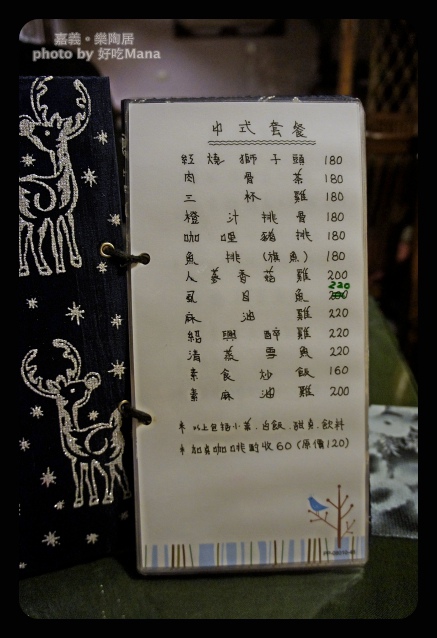 嘉義•樂陶居
photo by 好吃Mana
中式套餐
紅燒獅子頭 180
肉骨茶 180
三杯雞 180
橙汁排骨 180
咖哩豬排 180
魚排(旗魚) 180
人蔘香菇雞 200
虱目魚 220
麻油雞 220
紹興醉雞 220
清蒸雪魚 220
素食炒飯 160
素麻油雞 200
* 以上包括小菜、白飯、甜點、飲料
* 加點咖啡酌收60(原價120)